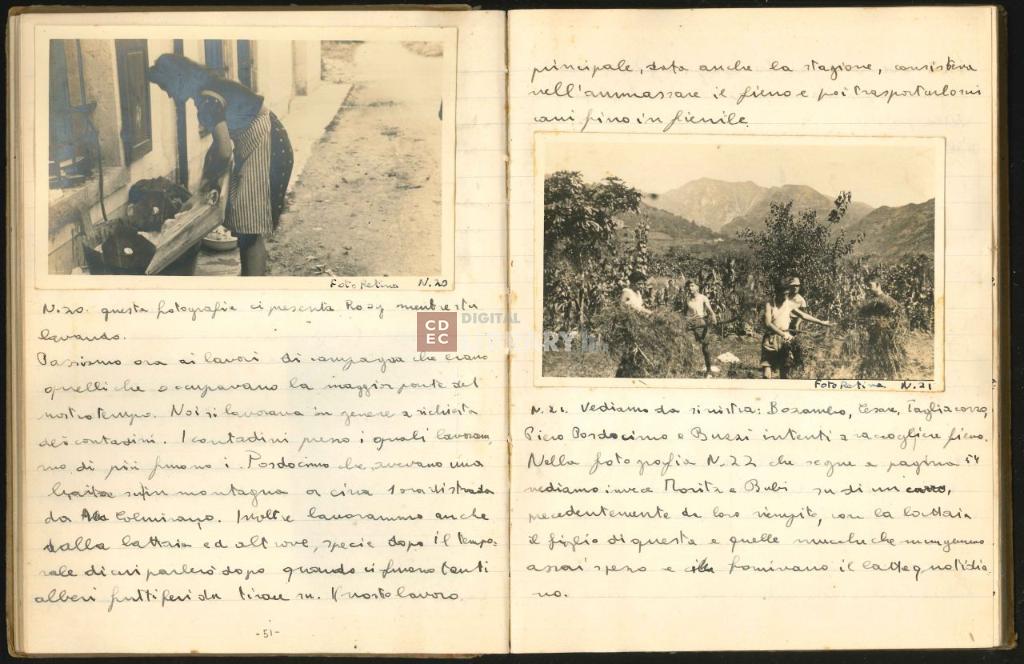 Foto Retina N. 20
N. 20. questa fotografia ci presenta Rosy mentre sta
lavando.
Passiamo ora ai lavori di campagna che erano
quelli che occupavano la maggior parte del
nostro tempo. Noi si lavorava in genere a richiesta
dei contadini. I contadini presso i quali lavoram
mo di più furono i Pordocimo che avevano una
baita su in montagna a circa 1 ora di strada
da Colmirano. Inoltre lavorammo anche
dalla lattaia ed altrove, specie dopo il tempo
rale di cui parlerò dopo quando ci furono tanti
alberi fruttiferi da tirar su. Il nostro lavoro
-51-
principale, data anche la stagione, consisteva
nell'ammassare il fieno e poi trasportarlo sui
carri fino in fienile.
Foto Retina N. 21
N. 21. Vediamo da sinistra: Bozambo, Cesare, Tagliacozzo,
Piero Pordocimo e Bussi intenti a raccogliere fieno.
Nella fotografia N. 22 che segue a pagina 54
vediamo invece Moritz e Bubi su di un carro,
precedentemente da loro riempito, con la lattaia
il figlio di questa e quelle mucche che mungevamo
assai spesso e che fornivano il latte quotidia
no.
CDEC
DIGITAL
LIBRARY